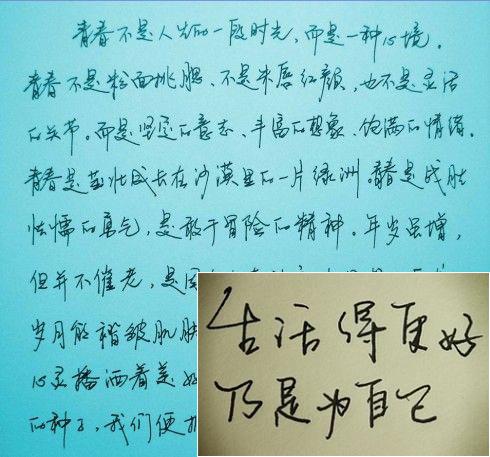 青春不是人生的一段时光，而是一种心境。
青春不是粉面桃腮、不是朱唇红颜，也不是灵活
的关节。而是坚定的意志、丰富的想象、饱满的情绪。
青春是茁壮成长在沙漠里的一片绿洲。青春是战胜
怯懦的勇气，是敢于冒险的精神。年岁虽增，
但并不催老，是因
岁月能褶皱肌肤
心灵播洒着美好
的种子，我们便
生活得更好
乃是为自己